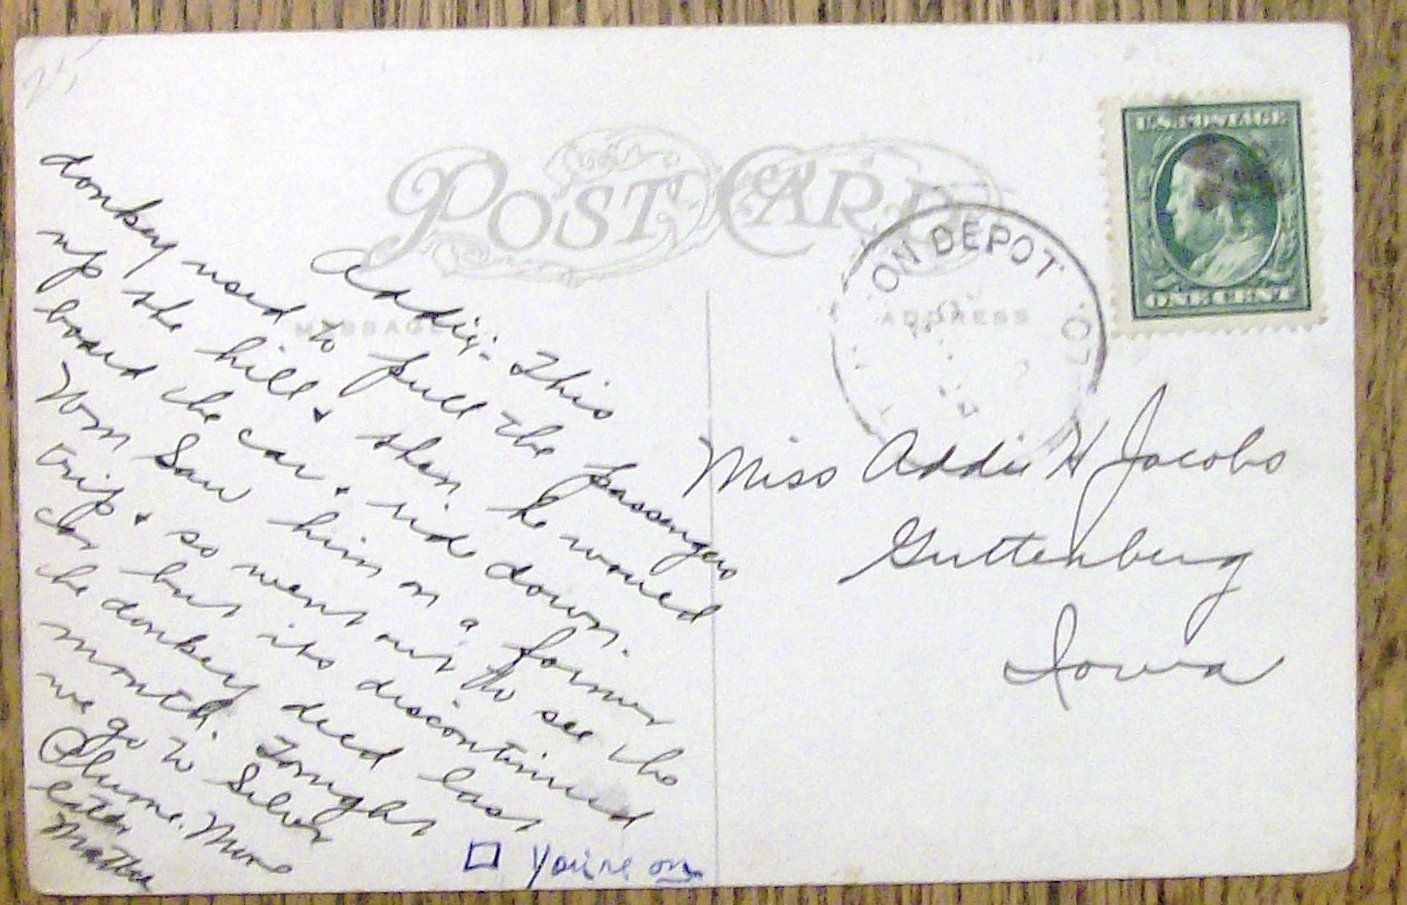 POST CARD
MESSAGE
ADDRESS
U.S. POSTAGE
ONE CENT
ON DEPOT
Addie:- This
donkey used to pull the passengers
up the hill & then he would
board the car & ride down.
Wm Saw him on a former
trip & so went out to see the
car but its discontinued
he donkey died last
month. Tonight
we go to Silver
Plume. More
later
Miss Addie H Jacobs
Guttenberg
Iowa
You're on